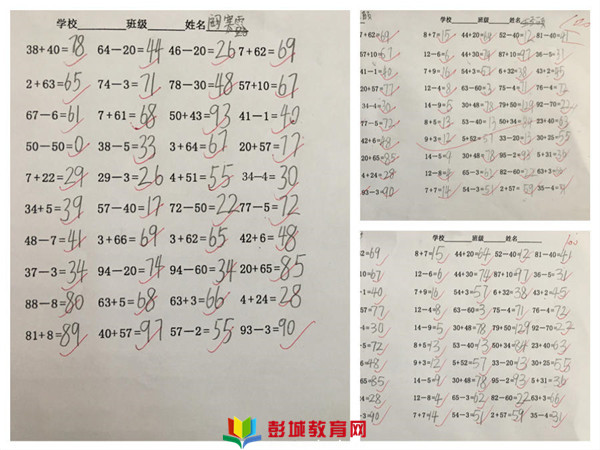 学校______班级______姓名
38+40=78 64−20=44 46−20=26 7+62=69
2+63=65 74−3=71 78−30=48 57+10=67
67−6=61 7+61=68 50+43=93 41−1=40
50−50=0 38−5=33 3+64=67 20+57=77
7+22=29 29−3=26 4+51=55 34−4=30
34+5=39 57−40=17 72−50=22 77−5=72
48−7=41 3+66=69 3+62=65 42+6=48
37−3=34 94−20=74 94−60=34 20+65=85
88−8=80 63+5=68 63+3=66 4+24=28
81+8=89 40+57=97 57−2=55 93−3=90
学校______班级______姓名
7+62=69 8+7=15 44+20=64 52−40=12 81−40=41
57+10=67 12−6=6 44+30=74 87+10=97 36−5=31
41−1=40 7+9=16 54+3=57 6+32=38 43+2=45
20+57=77 12−4=8 63−60=3 75−4=71 76−4=72
34−4=30 14−9=5 30+48=78 79+50= 92−70=22
77−5=72 8+5=13 53−40=13 50+34=84 23+40=63
42+6=48 9+3=12 5+52=57 33−20=13 30+25=55
20+65=85 14−5=9 30+48=78 95−2=93 5+31=36
4+24=28 12−8=4 65−3=62 82−60=22 63+3=66
93−3=90 7+7=14 54−3=51 2+57=59 35−4=31
100
学校______班级______姓名
62=69 8+7=15 44+20=64 52−40=12 81−40=41
10=67 12−6=6 44+30=74 87+10=97 36−5=31
1=40 7+9=16 54+3=57 6+32=38 43+2=45
57=77 12−4=8 63−60=3 75−4=71 76−4=72
4=30 14−9=5 30+48=78 79+50=129 92−70=22
5=72 8+5=13 53−40=13 50+34=84 23+40=63
6=48 9+3=12 5+52=57 33−20=13 30+25=55
65=85 14−5=9 30+48=78 95−2=93 5+31=36
24=28 12−8=4 65−3=62 82−60=22 63+3=66
3=90 7+7=14 54−3=51 2+57=59 35−4=31
100
彭城教育网